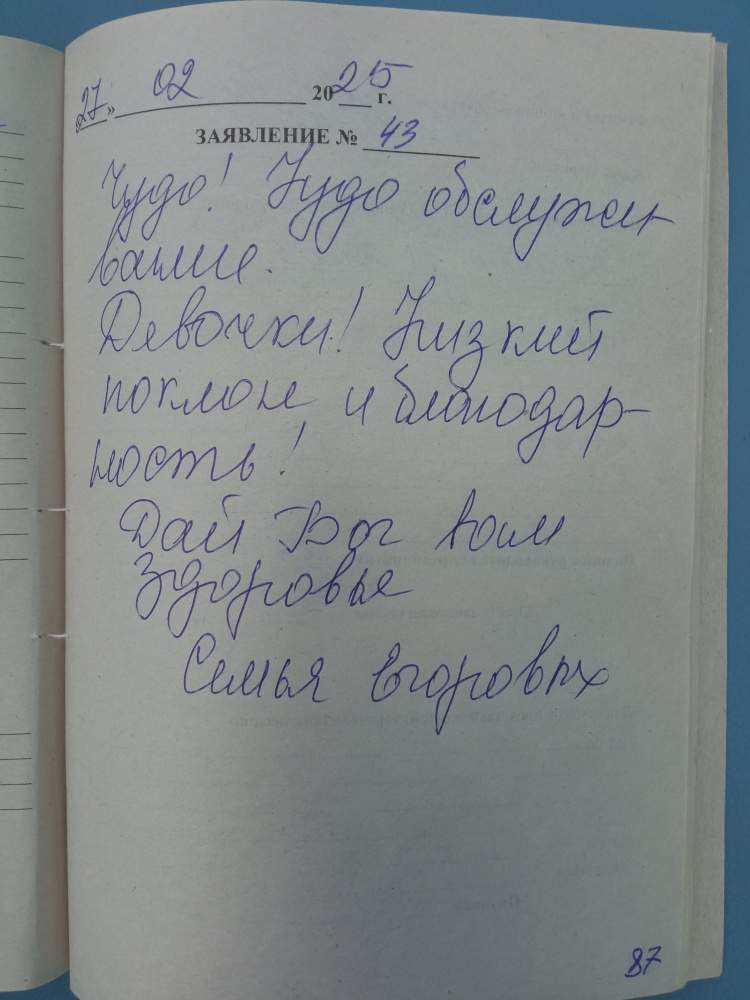 «27» 02 2025 г.
ЗАЯВЛЕНИЕ № 43
Чудо! Чудо обслужи-
вание.
Девочки! Низкий
поклон и благодар-
ность!
Дай Бог вам
здоровье
Семья Егоровых
87